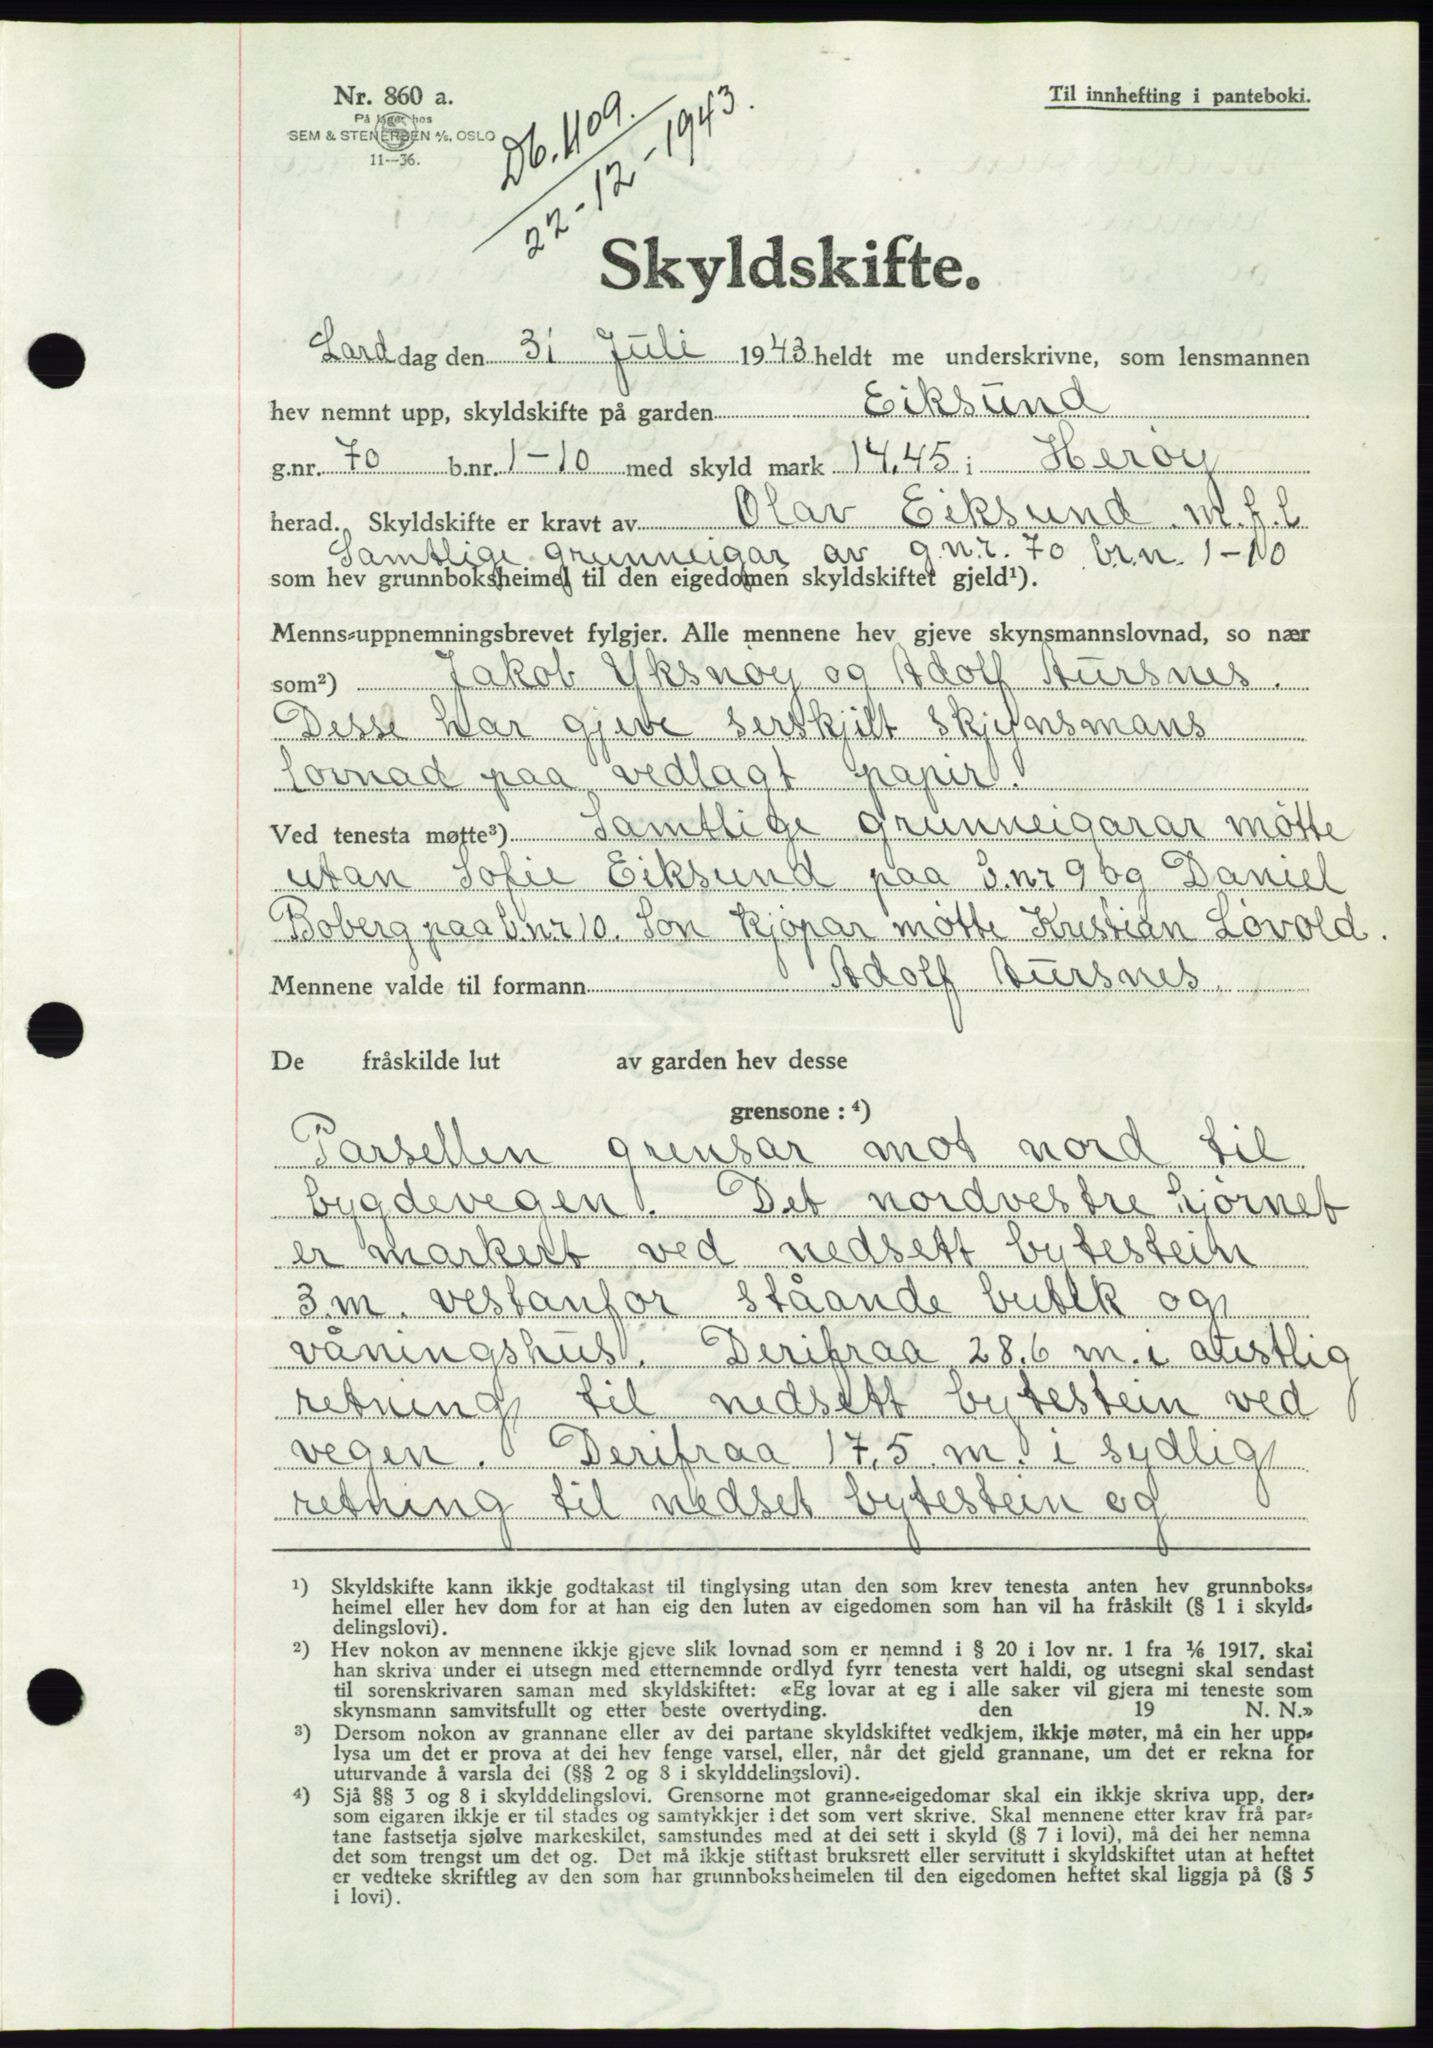 Nr. 860 a.
På lager hos
SEM & STENERSEN A/S, OSLO
11—36.
Til innhefting i panteboki.
Db. 1109.
22-12-1943.
Skyldskifte.
Lard dag den 31 Juli 1943 heldt me underskrivne, som lensmannen
hev nemnt upp, skyldskifte på garden Eiksund
g.nr. 70 b.nr. 1-10 med skyld mark 14.45 i Herøy
herad. Skyldskifte er kravt av Olav Eiksund m.f.l
Samtlige grunneigar av g.n.r. 70 br.n. 1-10
som hev grunnboksheimel til den eigedomen skyldskiftet gjeld¹).
Menns-uppnemningsbrevet fylgjer. Alle mennene hev gjeve skynsmannslovnad, so nær
som²) Jakob Yksnøy og Adolf Aursnes.
Desse har gjeve serskjilt skjynsmans
lovnad paa vedlagt papir.
Ved tenesta møtte³) Samtlige grunneigarar møtte
utan Sofie Eiksund paa b.nr 9 og Daniel
Boberg paa b.nr 10. Son kjøpar møtte Kristian Løvold.
Mennene valde til formann Adolf Aursnes.
De fråskilde lut av garden hev desse
grensone : ⁴)
Parsellen grensar mot nord til
bygdevegen. Det nordvestre hjørnet
er markert ved nedsett bytestein
3 m. vestanfor ståande butik og
våningshus. Derifraa 28.6 m. i austlig
retning til nedsett bytestein ved
vegen. Derifraa 17.5 m. i sydlig
retning til nedset bytestein og
¹) Skyldskifte kann ikkje godtakast til tinglysing utan den som krev tenesta anten hev grunnboks-
heimel eller hev dom for at han eig den luten av eigedomen som han vil ha fråskilt (§ 1 i skyld-
delingslovi).
²) Hev nokon av mennene ikkje gjeve slik lovnad som er nemnd i § 20 i lov nr. 1 fra 1/6 1917, skal
han skriva under ei utsegn med etternemnde ordlyd fyrr tenesta vert haldi, og utsegni skal sendast
til sorenskrivaren saman med skyldskiftet: «Eg lovar at eg i alle saker vil gjera mi teneste som
skynsmann samvitsfullt og etter beste overtyding. den 19 N. N.»
³) Dersom nokon av grannane eller av dei partane skyldskiftet vedkjem, ikkje møter, må ein her upp-
lysa um det er prova at dei hev fenge varsel, eller, når det gjeld grannane, um det er rekna for
uturvande å varsla dei (§§ 2 og 8 i skylddelingslovi).
⁴) Sjå §§ 3 og 8 i skylddelingslovi. Grensorne mot granne-eigedomar skal ein ikkje skriva upp, der-
som eigaren ikkje er til stades og samtykkjer i det som vert skrive. Skal mennene etter krav frå par-
tane fastsetja sjølve markeskilet, samstundes med at dei sett i skyld (§ 7 i lovi), må dei her nemna
det som trengst um det og. Det må ikkje stiftast bruksrett eller servitutt i skyldskiftet utan at heftet
er vedteke skriftleg av den som har grunnboksheimelen til den eigedomen heftet skal liggja på (§ 5
i lovi).